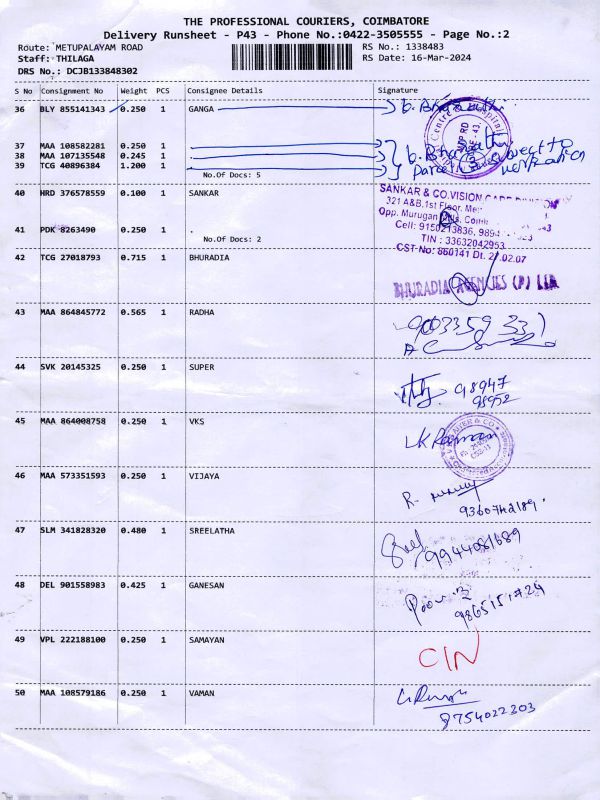 THE PROFESSIONAL COURIERS, COIMBATORE
Delivery Runsheet - P43 - Phone No.:0422-3505555 - Page No.:2
Route: METUPALAYAM ROAD
Staff: THILAGA
DRS No.: DCJB133848302
RS No.: 1338483
RS Date: 16-Mar-2024
S No Consignment No Weight PCS Consignee Details Signature
36 BLY 855141343 0.250 1 GANGA
37 MAA 108582281 0.250 1 .
38 MAA 107135548 0.245 1 .
39 TCG 40896384 1.200 1 .
No.Of Docs: 5
40 HRD 376578559 0.100 1 SANKAR
SANKAR & CO.VISION
321 A&B.1st Floor,
Opp. Murugan
Cell: 9150213836, 989
TIN : 33632042953
CST No: 860141 Dt. 27.02.07
41 PDK 8263490 0.250 1 .
No.Of Docs: 2
42 TCG 27018793 0.715 1 BHURADIA
BHURADIA AGENCIES (P) LTD
43 MAA 864845772 0.565 1 RADHA
44 SVK 20145325 0.250 1 SUPER
98947
45 MAA 864008758 0.250 1 VKS
46 MAA 573351593 0.250 1 VIJAYA
9360742189.
47 SLM 341828320 0.480 1 SREELATHA
9944081689
48 DEL 901558983 0.425 1 GANESAN
49 VPL 222188100 0.250 1 SAMAYAN
CIN
50 MAA 108579186 0.250 1 VAMAN
8754022303